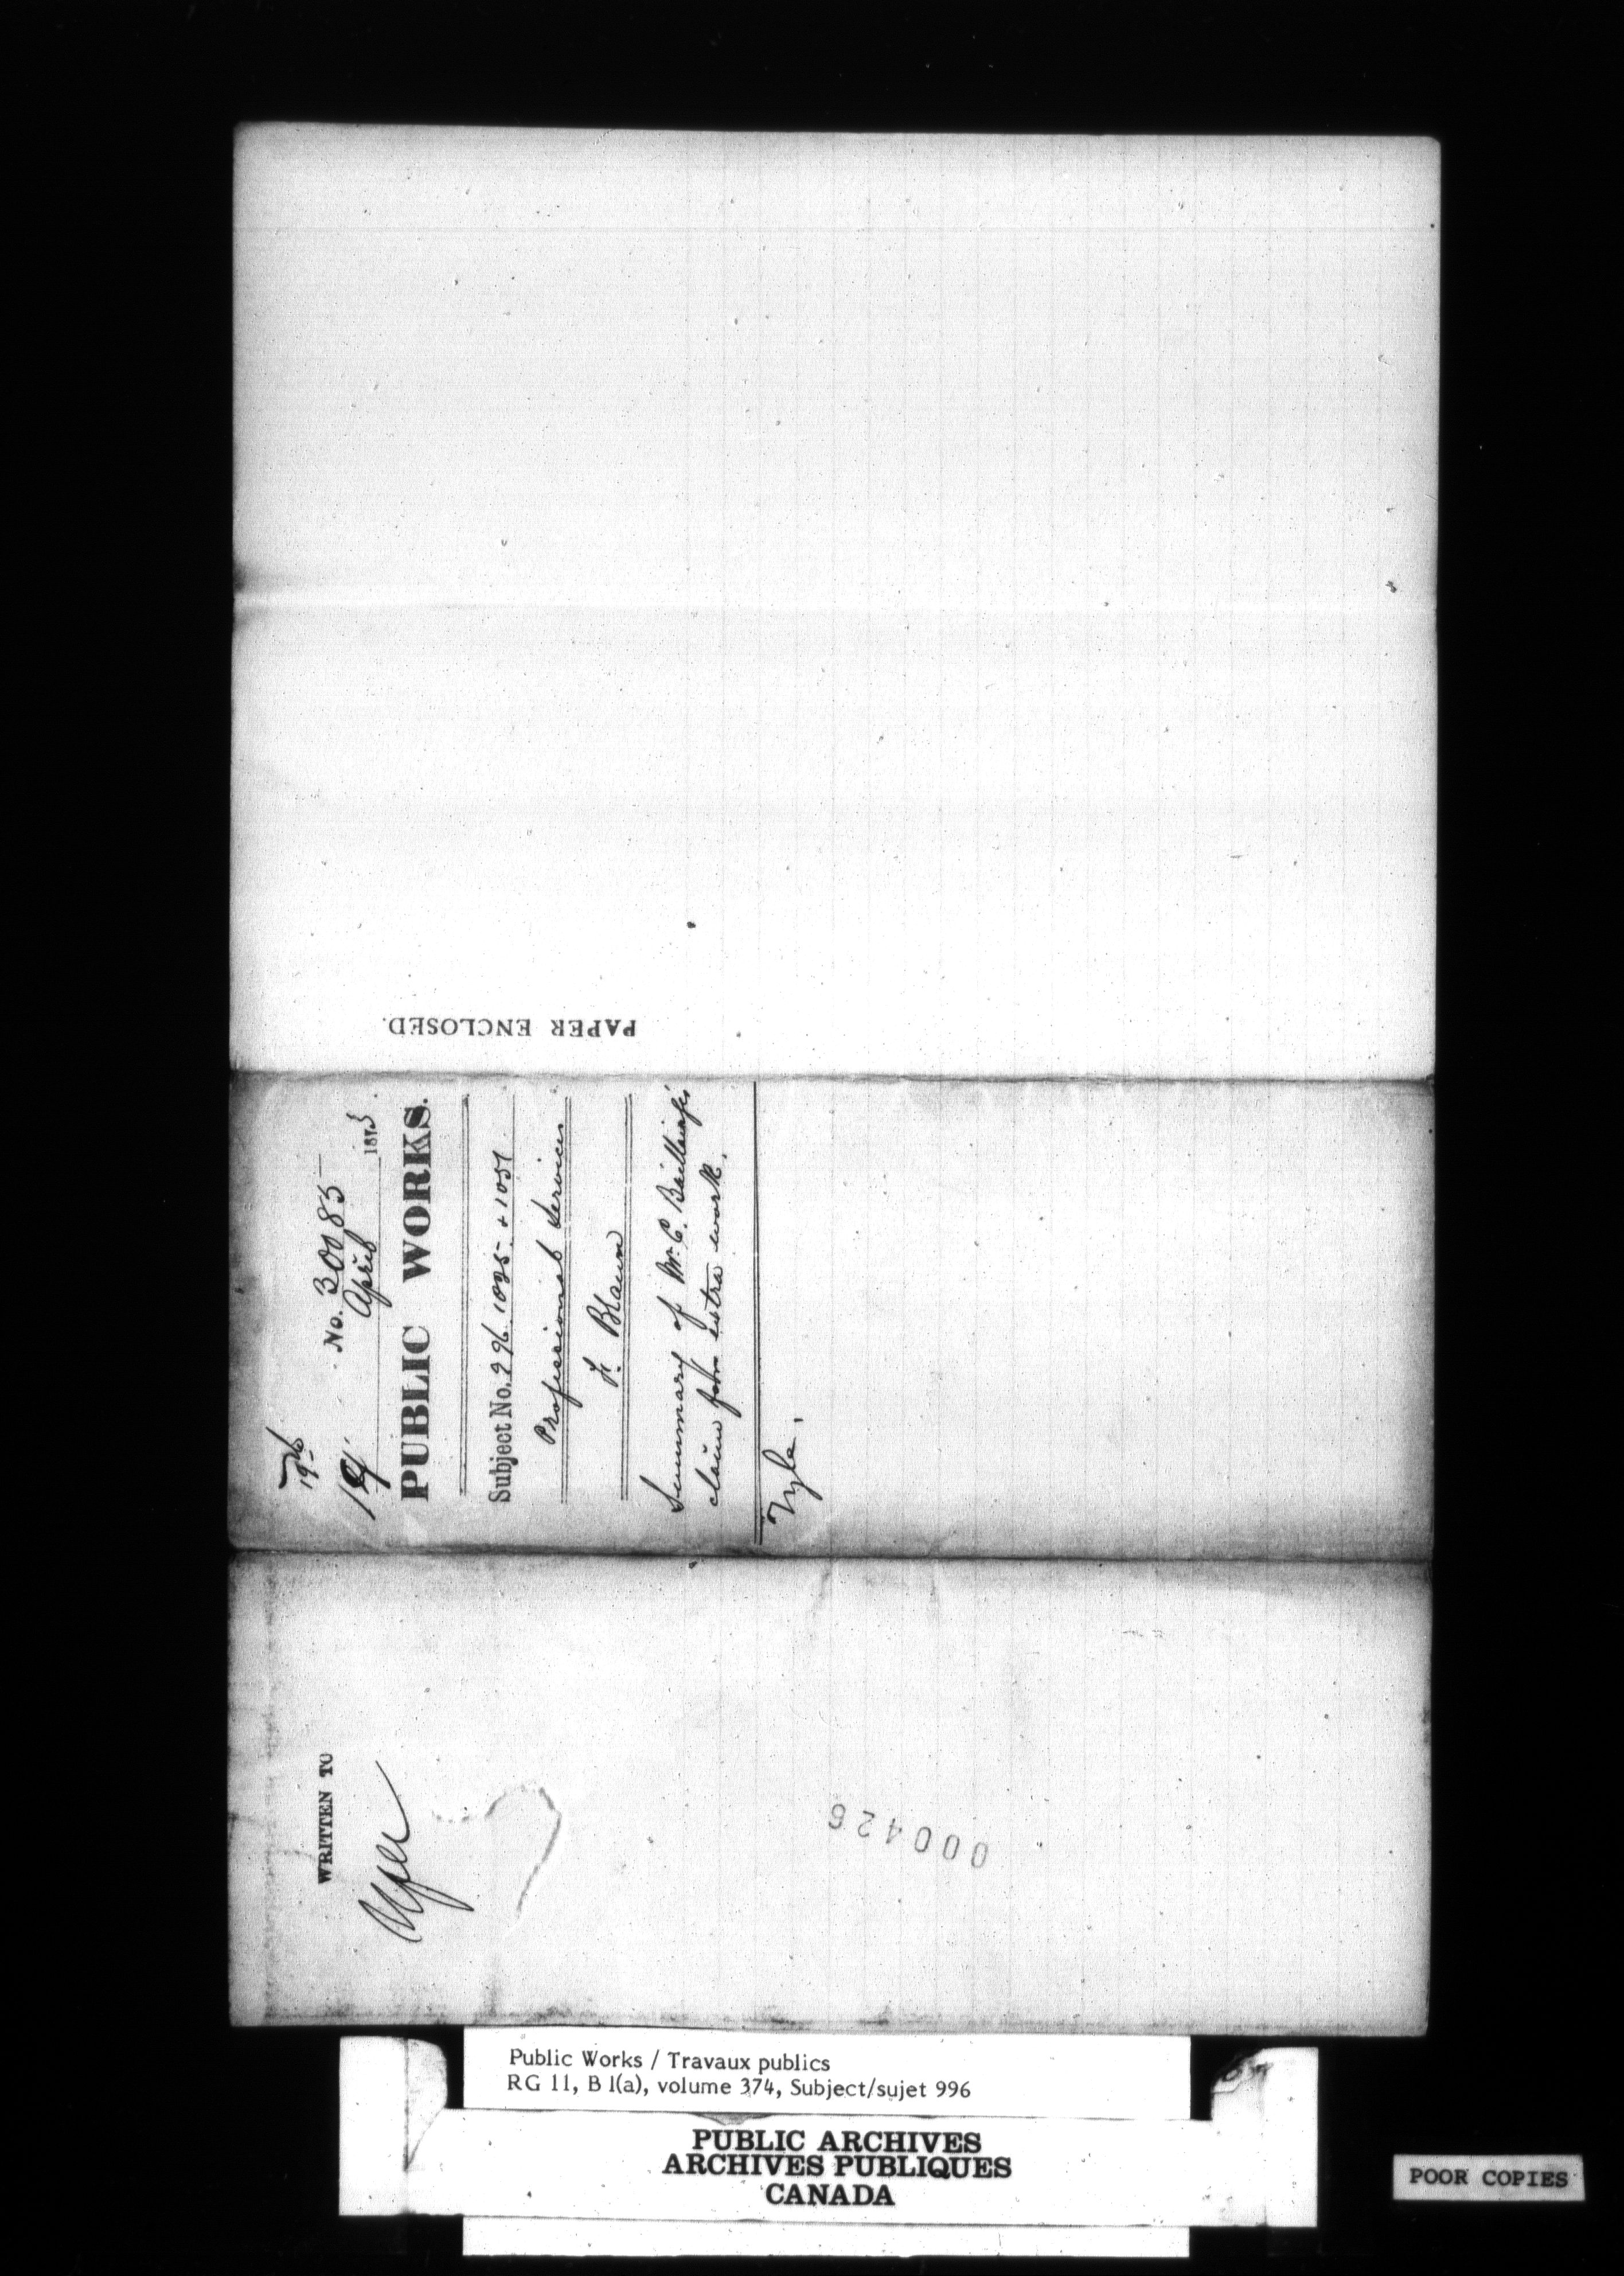 PAPER ENCLOSED.
19th
19
No. 30085
April 1873.
PUBLIC WORKS.
Subject No. 296. 1025 + 1051
Professional Services
F. Braun
Summary of Mr. C. Baillairgé's
claim for extra work.
Fyle.
WRITTEN TO
000426
Public Works / Travaux publics
RG 11, B 1(a), volume 374, Subject/sujet 996
PUBLIC ARCHIVES
ARCHIVES PUBLIQUES
CANADA
POOR COPIES